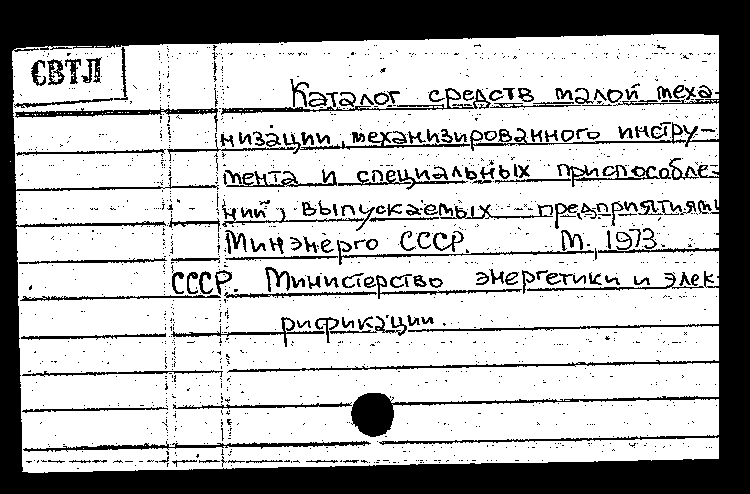 СВТЛ
Каталог средств малой меха-
низации, механизированного инстру-
мента и специальных приспособле-
ний, выпускаемых предприятиями
Минэнерго СССР. М., 1973.
СССР. Министерство энергетики и элек-
рификации.